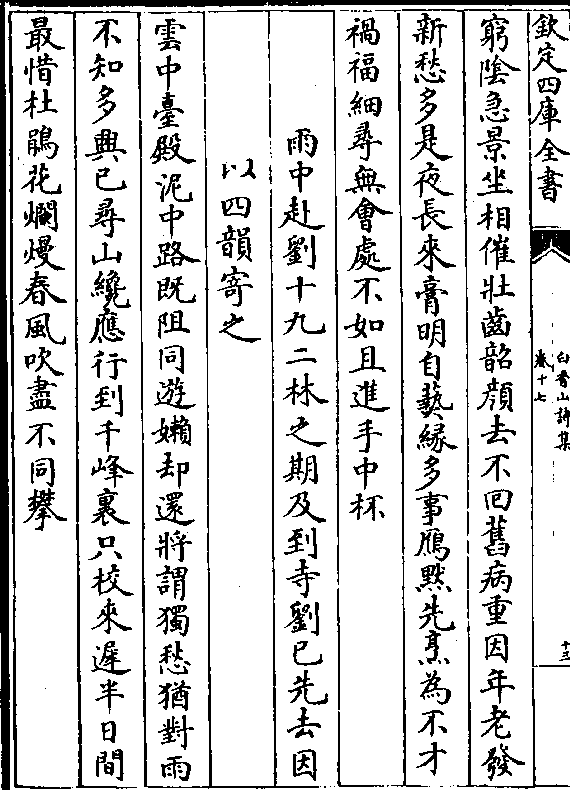 欽定四庫全書
白香山詩集
卷十七
十三
窮陰急景坐相催壯齒韶顔去不囘舊病重因年老發
新愁多是夜長來膏明自爇縁多事鴈黙先烹為不才
禍福細尋無會處不如且進手中杯
雨中赴劉十九二林之期及到寺劉已先去因
以四韻寄之
雲中臺殿泥中路既阻同遊嬾却還將謂獨愁猶對雨
不知多興已尋山纔應行到千峰裏只校來遲半日間
最惜杜鵑花爛熳春風吹盡不同攀